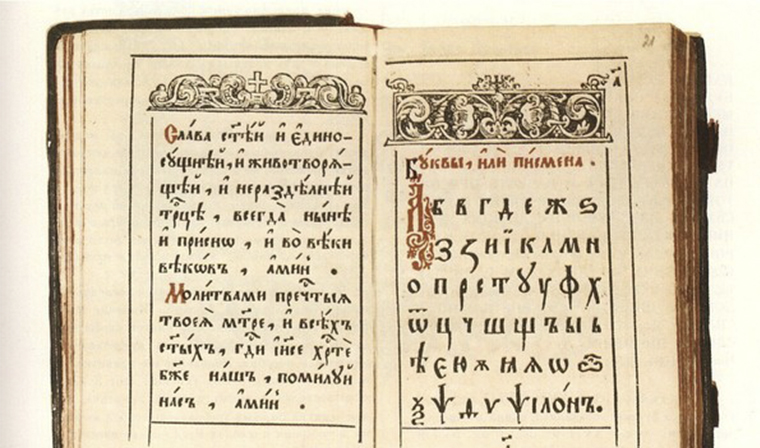 Сла́ва ст҃ѣ́й и҆ є҆дино-
сꙋ́щнѣй, и҆ животворѧ́-
щей, и҆ нераздѣ́лнѣй
трⷪ҇цѣ, всегда̀ ны́нѣ
и҆ при́снѡ, и҆ во вѣ́ки
вѣкѡ́въ, а҆ми́нь.
Моли́твами пречⷭ҇тыѧ
твоеѧ̀ мт҃ре, и҆ всѣ́хъ
ст҃ы́хъ, гдⷭ҇и і҆и҃се хрⷭ҇тѐ
бж҃е нашъ, поми́лꙋй
на́съ, а҆ми́нь.
21
а҃
Бꙋ́квы, и҆лѝ пи́смена.
А Б В Г Д Е Ж Ѕ
З И Ї К Л М Н
О П Р С Т Ꙋ У Ф Х
Ѿ Ц Ч Ш Щ Ъ Ы Ь
Ѣ Є Ю Ѫ Ѧ Ѡ
Ѯ Ѱ Ѳ Ѵ Ѱїло́нъ.